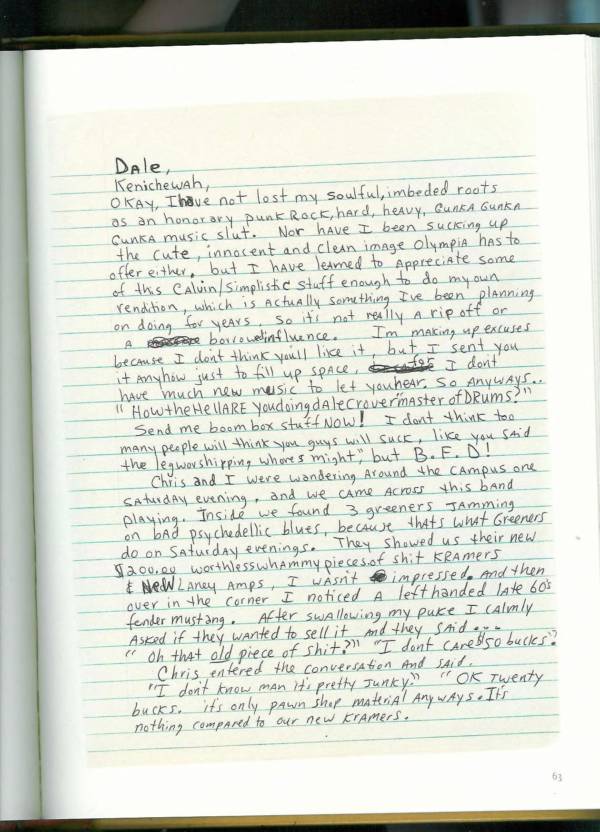 Dale,
Kenichewah,
OKAY, I have not lost my soulful, imbeded roots
as an honorary punk Rock, hard, heavy, Gunka Gunka
Gunka music slut. Nor have I been sucking up
the cute, innocent and clean image Olympia has to
offer either. but I have learned to appreciate some
of this Calvin/Simplistic stuff enough to do my own
rendition, which is actually something I've been planning
on doing for years. So it's not really a rip off or
a borrowed influence. I'm making up excuses
because I don't think you'll like it, but I sent you
it anyhow just to fill up space, I don't
have much new music to let you hear. So anyways..
"How the Hell ARE you doing dAle Crover "mAster of DRums?"
Send me boom box stuff NOW! I dont think too
many people will think you guys will suck, like you said
the leg worshipping whores might", but B.F.D!
Chris and I were wandering around the campus one
saturday evening, and we came across this band
playing. Inside we found 3 greeners jamming
on bad psychedellic blues, because thats what Greeners
do on Saturday evenings. They showed us their new
$200.00 worthless whammy pieces of shit KRAMERS
& New Laney Amps, I wasn't impressed. And then
over in the corner I noticed a left handed late 60's
fender mustang. After swallowing my puke I calmly
asked if they wanted to sell it and they said...
"Oh that old piece of shit?" "I don't care $50 bucks"?
Chris entered the conversation and said.
"I don't know man it's pretty junky." "OK twenty
bucks. it's only pawn shop material anyways. It's
nothing compared to our new Kramers.
63